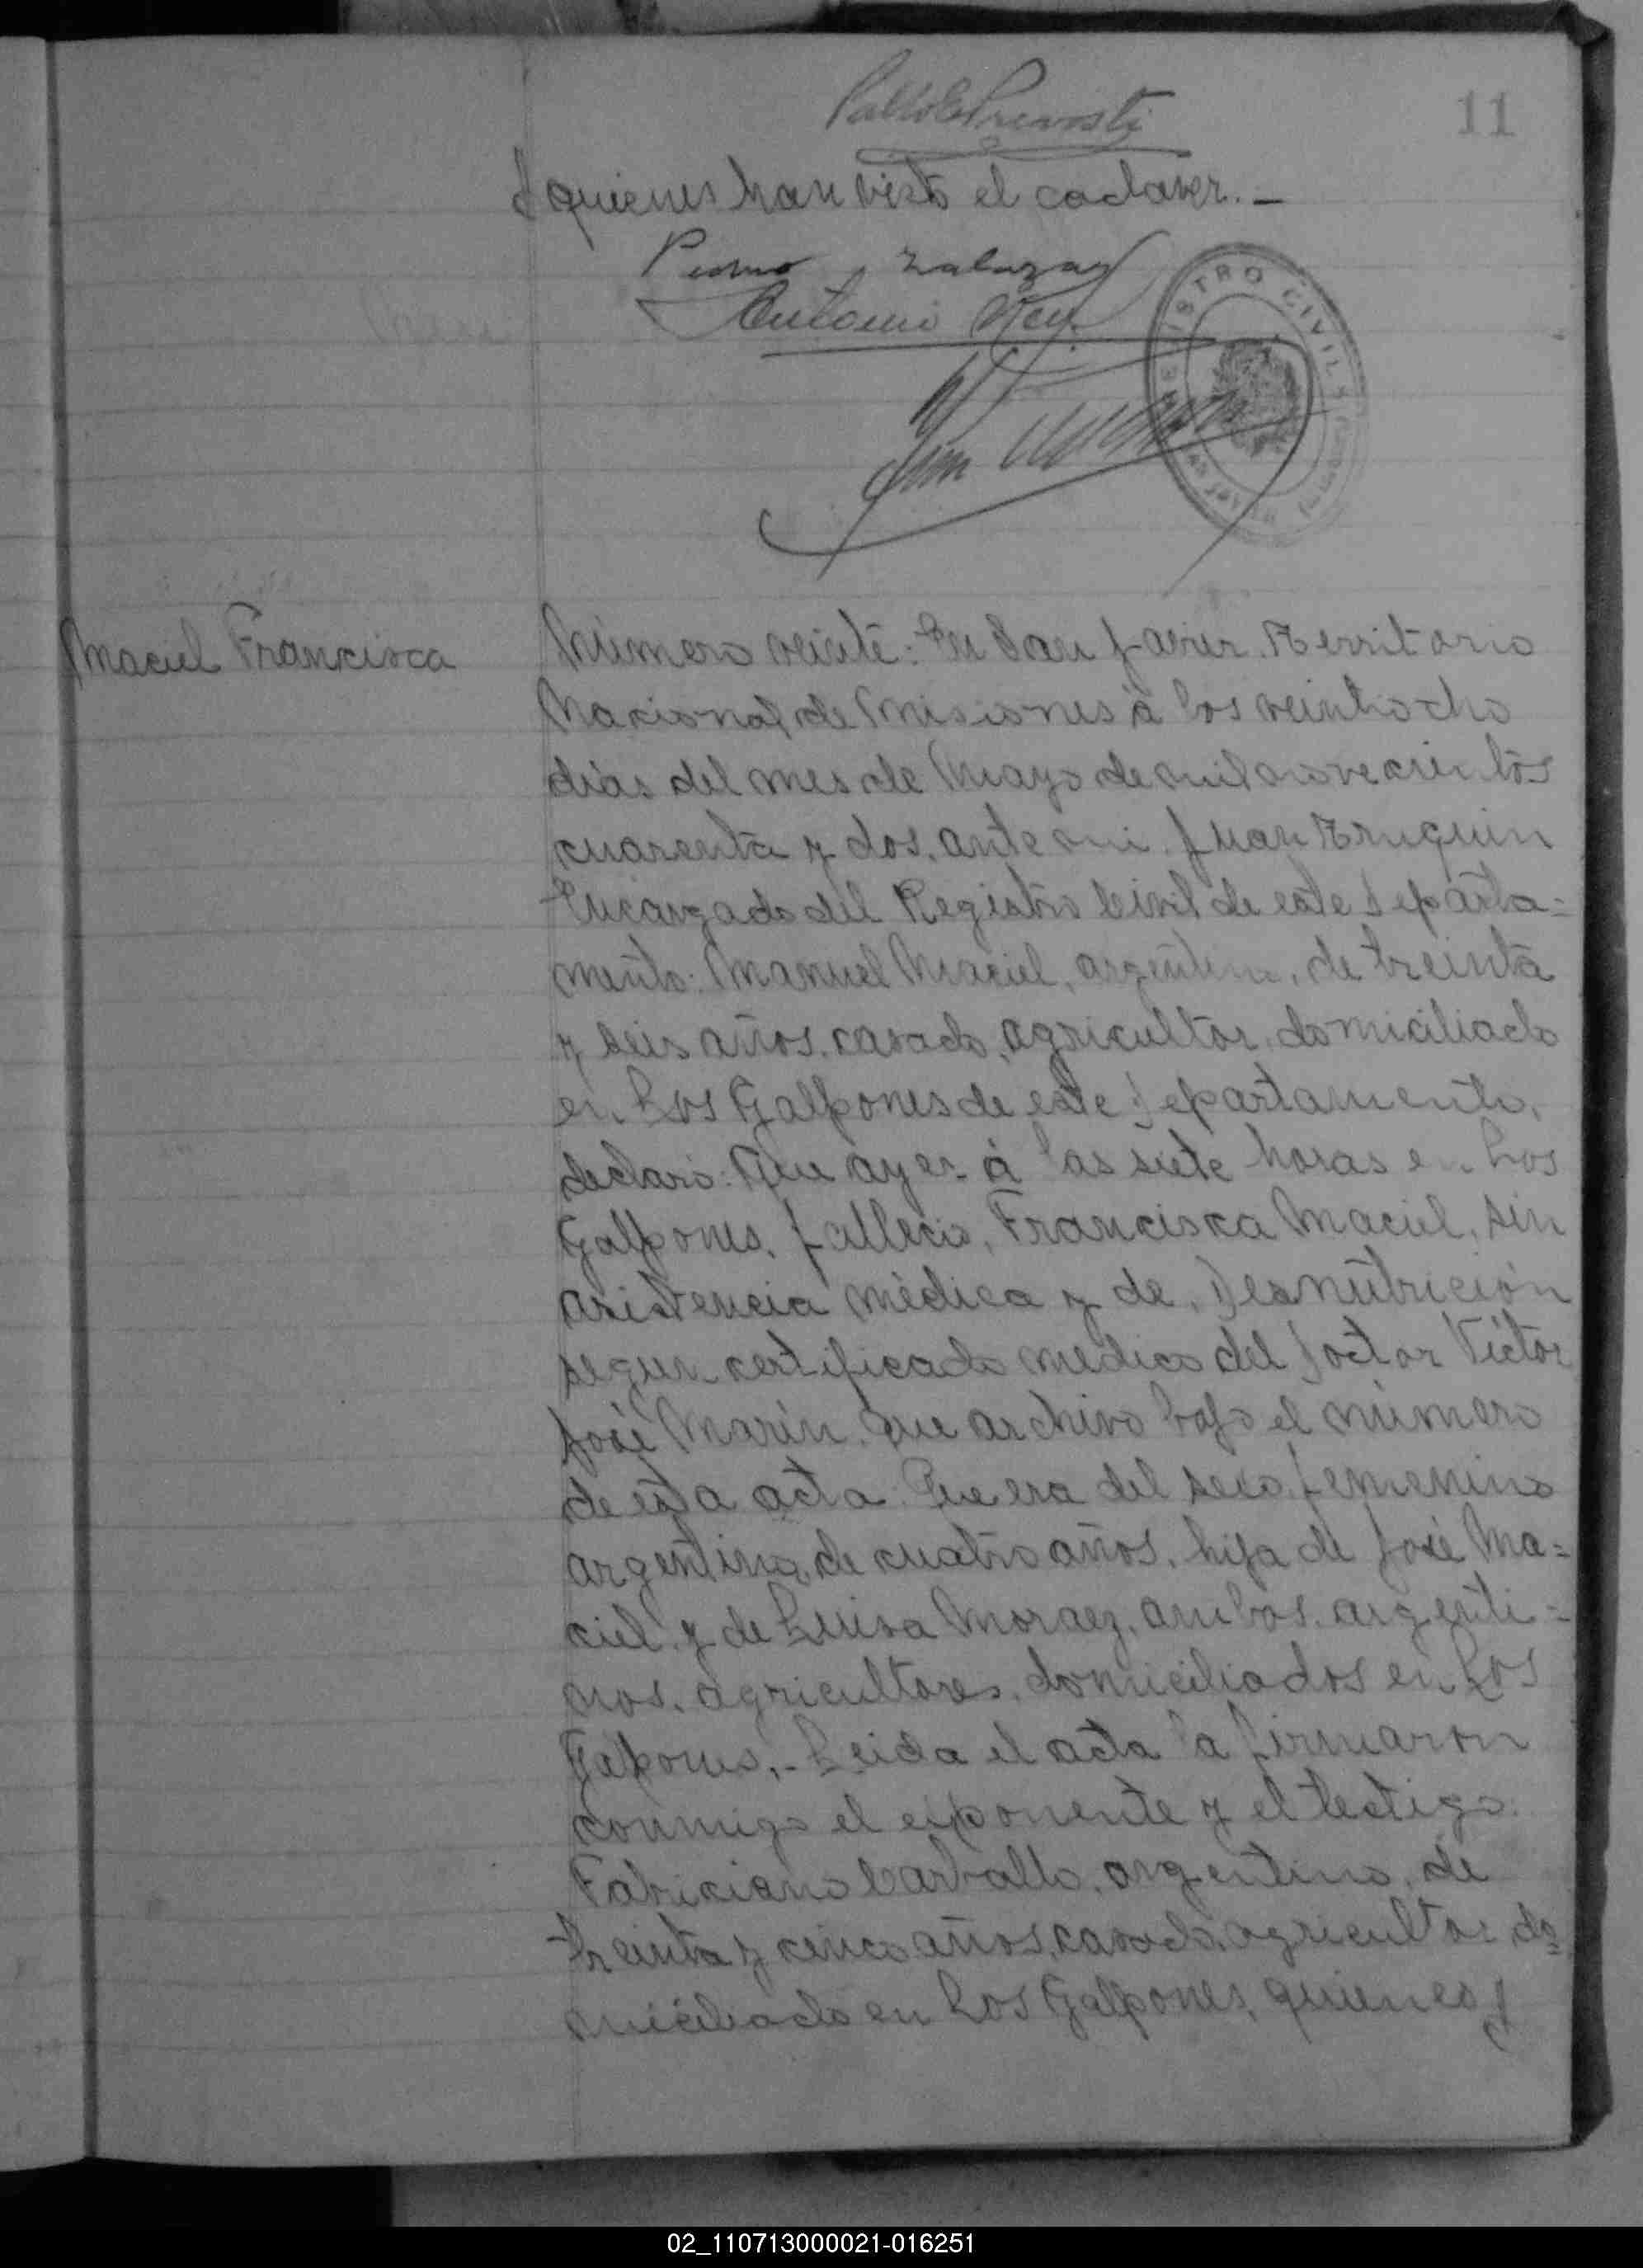 11
quienes han visto el cadaver.-
Antonio Rey
REGISTRO CIVIL
Maciel Francisca
Número veinte: En San Javier. Territorio
Nacional, de Misiones á los veintiocho
días del mes de Mayo de mil novecientos
cuarenta y dos. ante mi. Juan Truquin
Encargado del Registro Civil de este Departa=
mento: Manuel Maciel, argentino, de treinta
y seis años. casado, agricultor, domiciliado
en Los Galpones de este Departamento,
declaró: Que ayer á las siete horas en Los
Galpones, falleció, Francisca Maciel, sin
asistencia médica y de, Desnutrición
segun certificado medico del Doctor Víctor
José Marín. que archivo bajo el número
de esta acta: Que era del sexo femenino
argentina, de cuatro años, hija de José Ma=
ciel y de Luisa Moraez, ambos, argenti=
nos, agricultores, domiciliados en Los
Galpones,- Leida el acta la firmaron
conmigo el exponente y el testigo:
Fabriciano Carballo, argentino, de
treinta y cinco años, casado, agricultor, do=
miciliado en Los Galpones, quienes
02_110713000021-016251